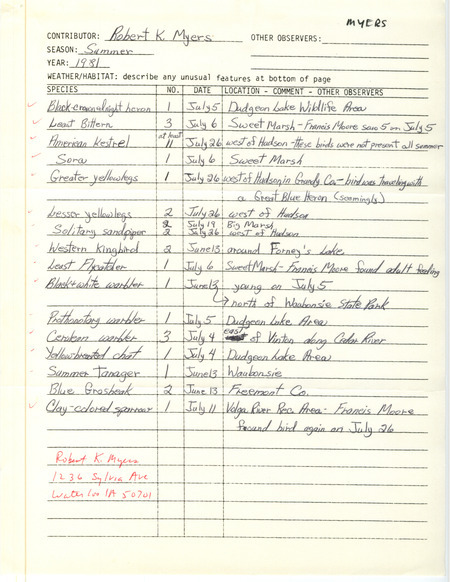 MYERS
CONTRIBUTOR: Robert K. Myers OTHER OBSERVERS:
SEASON: Summer
YEAR: 1981
WEATHER/HABITAT: describe any unusual features at bottom of page
SPECIES NO. DATE LOCATION - COMMENT - OTHER OBSERVERS
Black-crowned night heron 1 July 5 Dudgeon Lake Wildlife Area
Least Bittern 3 July 6 Sweet Marsh - Francis Moore saw 5 on July 5
American Kestrel at least 11 July 26 west of Hudson - these birds were not present all summer
Sora 1 July 6 Sweet Marsh
Greater yellowlegs 1 July 26 west of Hudson in Grundy Co. - bird was traveling with
a Great Blue Heron (seemingly)
Lesser yellowlegs 2 July 26 west of Hudson
Solitary sandpiper 2 July 19 Big Marsh
2 July 26 west of Hudson
Western Kingbird 2 June 13 around Forney's Lake
Least Flycatcher 1 July 6 Sweet Marsh - Francis Moore found adult feeding
Black+white warbler 1 June 13 young on July 5
north of Waubonsie State Park
Prothonotary warbler 1 July 5 Dudgeon Lake Area
Cerulean warbler 3 July 4 east of Vinton along Cedar River
Yellow-breasted chat 1 July 4 Dudgeon Lake Area
Summer Tanager 1 June 13 Waubonsie
Blue Grosbeak 2 June 13 Freemont Co.
Clay-colored sparrow 1 July 11 Volga River Rec. Area - Francis Moore
found bird again on July 26
Robert K. Myers
1236 Sylvia Ave
Waterloo IA 50701